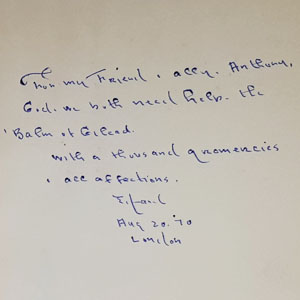 For my Friend & ally. Anthony,
God. we both need help. the
Balm of Gilead.
with a thousand
& all affections.
Aug 20. '70
London